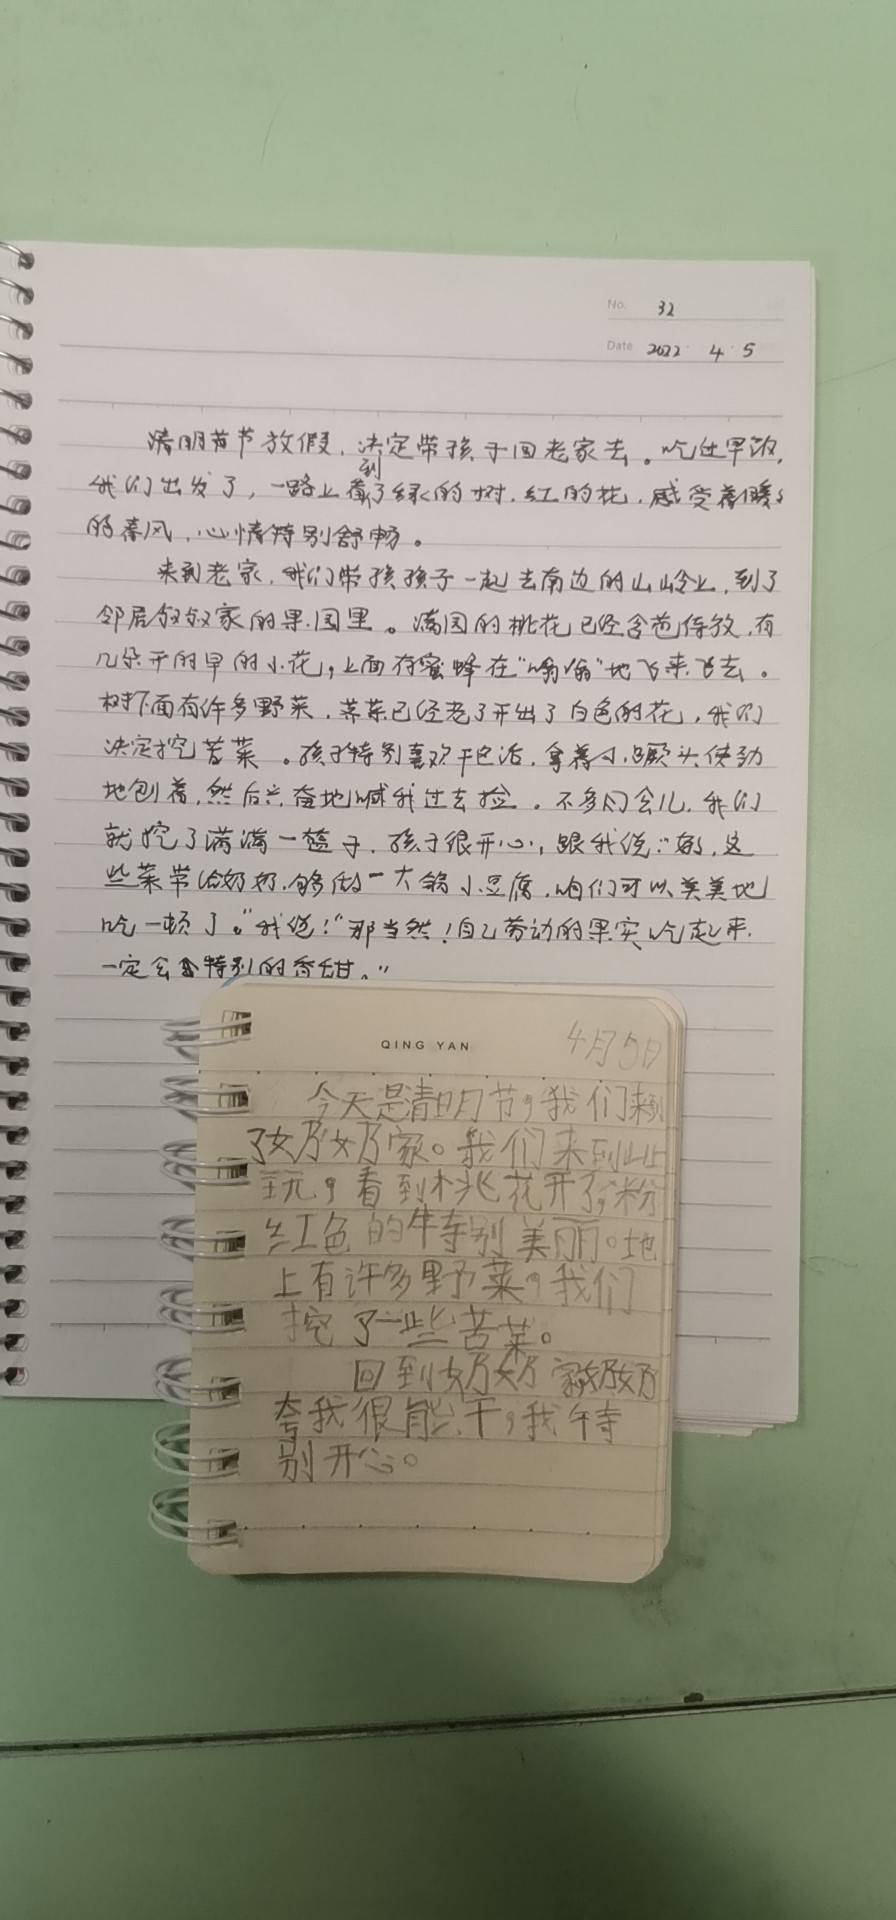 No. 32
Date 2022 4 5
清明节放假，决定带孩子回老家去。吃过早饭，
到
我们出发了，一路上看了绿的树，红的花，感受着暖暖
的春风，心情特别舒畅。
来到老家，我们带孩孩子一起去南边的山岭上，到了
邻居叔叔家的果园里。满园的桃花已经含苞待放，有
几朵开的早的小花，上面有蜜蜂在“嗡嗡”地飞来飞去。
树下面有许多野菜，荠菜已经老了开出了白色的花，我们
决定挖苦菜。孩子特别喜欢干这活，拿着小镢头使劲
地刨着，然后兴奋地喊我过去捡。不多会儿，我们
就挖了满满一篮子，孩子很开心，跟我说：“妈，这
些菜带给奶奶，够做一大锅小豆腐，咱们可以美美地
吃一顿了。”我说：“那当然！自己劳动的果实吃起来，
一定会特别的香甜。”
QING YAN
4月5日
今天是清明节，我们来到
了奶奶家。我们来到山上
玩，看到桃花开了，粉
红色的特别美丽。地
上有许多野菜，我们
挖了一些苦菜。
回到奶奶家奶奶
夸我很能干，我特
别开心。